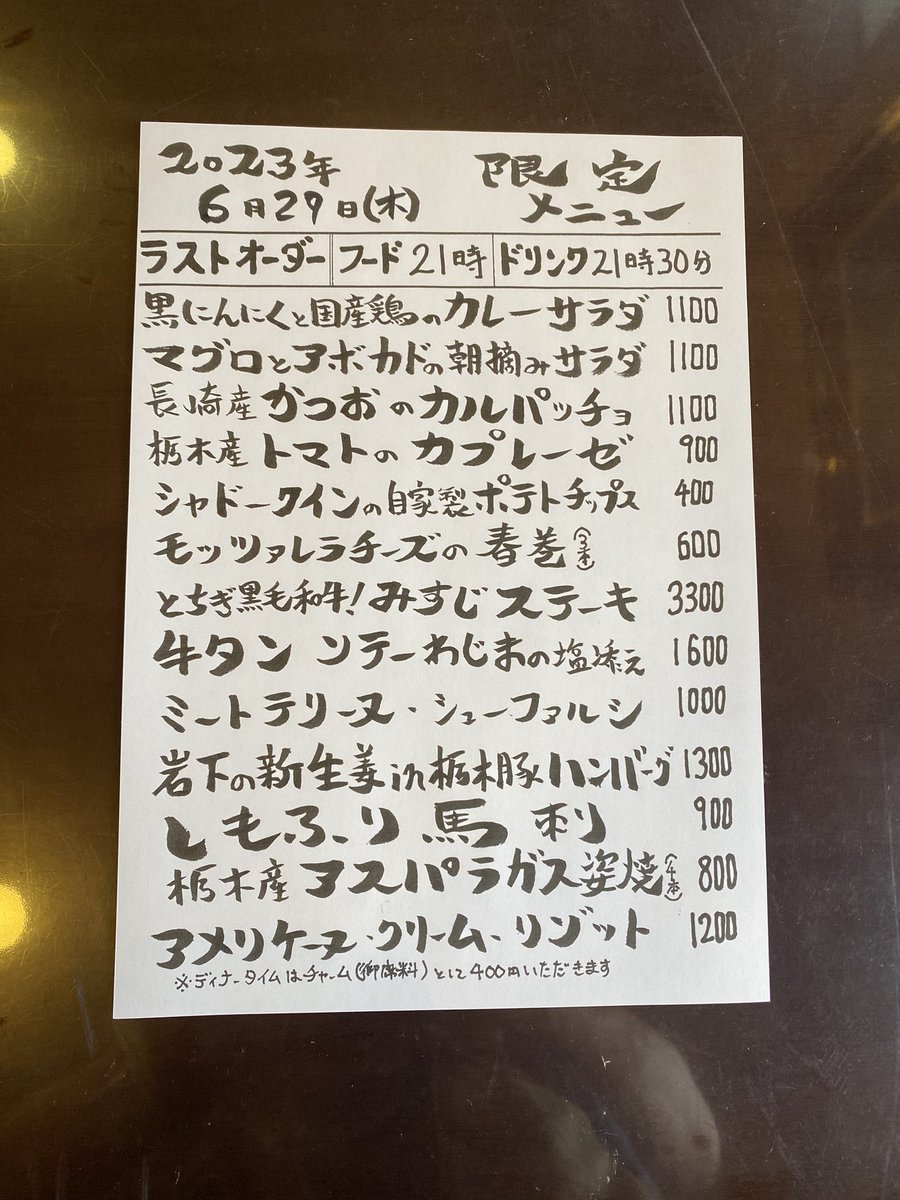 2023年 限定
6月29日(木) メニュー
ラストオーダー フード21時 ドリンク21時30分
黒にんにくと国産鶏のカレーサラダ 1100
マグロとアボカドの朝摘みサラダ 1100
長崎産かつおのカルパッチョ 1100
栃木産トマトのカプレーゼ 900
シャドークインの自家製ポテトチップス 400
モッツァレラチーズの春巻(3本) 600
とちぎ黒毛和牛!みすじステーキ 3300
牛タンソテーわじまの塩添え 1600
ミートテリーヌ・シューファルシ 1000
岩下の新生姜in栃木豚ハンバーグ 1300
しもふり馬刺 900
栃木産アスパラガス姿焼(4本) 800
アメリケーヌ・クリーム・リゾット 1200
※ディナータイムはチャーム(御席料)として400円いただきます